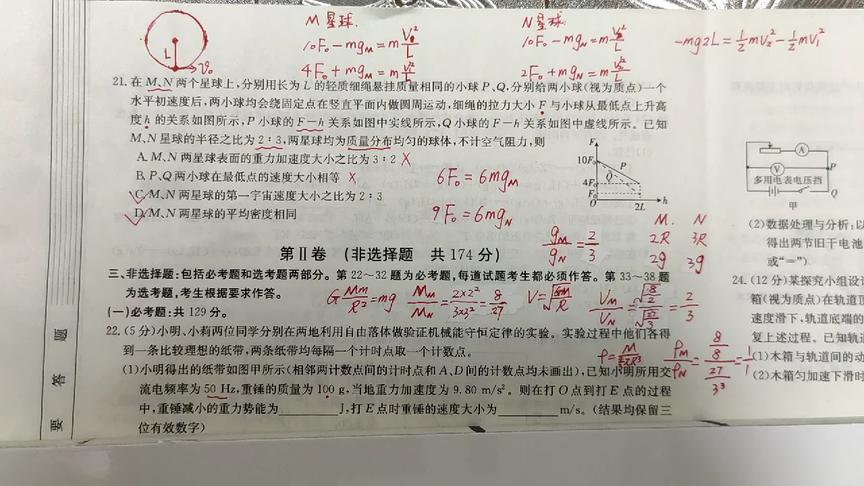 M 星球.
N 星球.
10F₀ - mg_M = m V₁²/L
10F₀ - mg_N = m V₁²/L
-mg2L = ½mV₂² - ½mV₁²
4F₀ + mg_M = m V₂²/L
2F₀ + mg_N = m V₂²/L
L
v₀
21. 在 M、N 两个星球上,分别用长为 L 的轻质细绳悬挂质量相同的小球 P、Q,分别给两小球(视为质点)一个
水平初速度后,两小球均会绕固定点在竖直平面内做圆周运动,细绳的拉力大小 F 与小球从最低点上升高
度 h 的关系如图所示,P 小球的 F—h 关系如图中实线所示,Q 小球的 F—h 关系如图中虚线所示。已知
M、N 星球的半径之比为 2∶3,两星球均为质量分布均匀的球体,不计空气阻力,则
A. M、N 两星球表面的重力加速度大小之比为 3∶2 ×
B. P、Q 两小球在最低点的速度大小相等 ×
C. M、N 两星球的第一宇宙速度大小之比为 2∶3
D. M、N 两星球的平均密度相同
6F₀ = 6mg_M
9F₀ = 6mg_N
F
10F₀
P
Q
4F₀
F₀
O
2L
h
g_M/g_N = 2/3
M.
N
2R
3R
2g
3g
第Ⅱ卷 (非选择题 共 174 分)
三、非选择题:包括必考题和选考题两部分。第 22～32 题为必考题,每道试题考生都必须作答。第 33～38题
为选考题,考生根据要求作答。
G Mm/R² = mg
M_M/M_N = 2×2²/3×3² = 8/27
V = √(GM/R)
V_M/V_N = √(8/2)/√(27/3) = 2/3
(一)必考题:共 129 分。
22. (5 分)小明、小莉两位同学分别在两地利用自由落体做验证机械能守恒定律的实验。实验过程中他们各得
到一条比较理想的纸带,两条纸带均每隔一个计时点取一个计数点。
ρ = M/(4/3πR³)
ρ_M/ρ_N = (8/8)/(27/3³) = 1/1
(1)小明得出的纸带如图甲所示(相邻两计数点间的计时点和 A、D 间的计数点均未画出),已知小明所用交
流电频率为 50 Hz,重锤的质量为 100 g,当地重力加速度为 9.80 m/s²。则在打 O 点到打 E 点的过程
中,重锤减小的重力势能为________J,打 E 点时重锤的速度大小为________m/s。(结果均保留三
位有效数字)
要 答 题
A
P
Q
多用电表电压挡
甲
(2)数据处理与分析:以
得出两节旧干电池
或“=”)
24. (12 分)某探究小组设计
箱(视为质点)在轨道顶
速度滑下,轨道底端的
复上述过程。已知轨道
(1)木箱与轨道间的动
(2)木箱匀加速下滑时